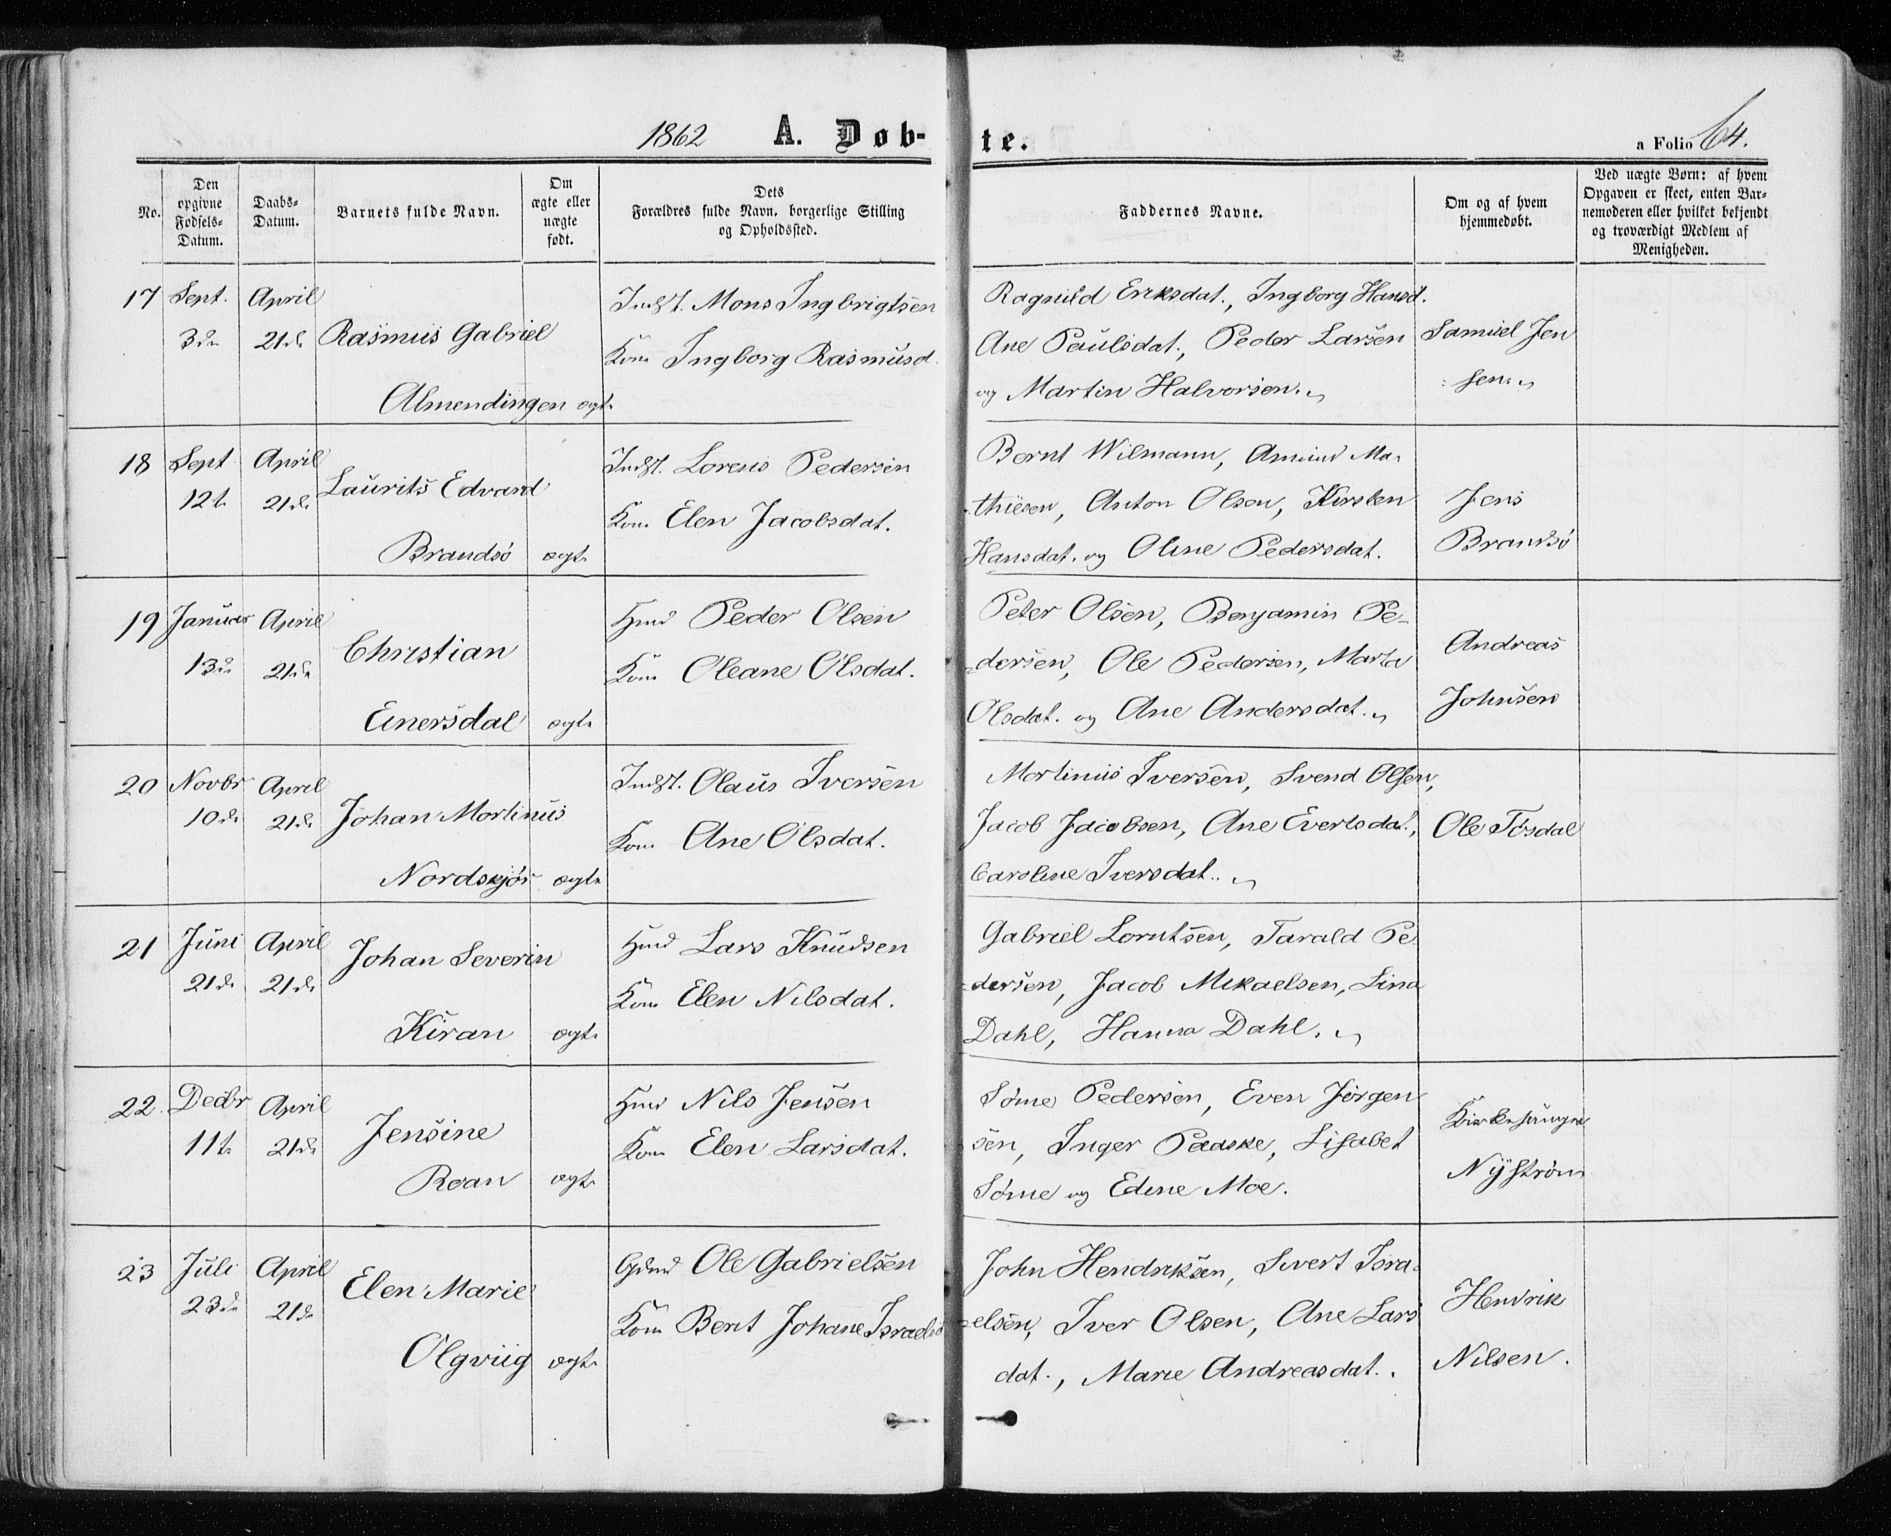 1862 A. Døb-te. a Folio 64.
No.
Den opgivne Fødsels-Datum.
Daabs-Datum.
Barnets fulde Navn.
Om ægte eller uægte født.
Dets Forældres fulde Navn, borgerlige Stilling og Opholdssted.
Faddernes Navne.
Om og af hvem hjemmedøbt.
Ved uægte Børn: af hvem Opgaven er skeet, enten Barnemoderen eller hvilket bekjendt og troværdigt Medlem af Menigheden.
17 Sept. April Indst. Mons Ingbrigtsen Ragnild Eriksdat., Ingborg Hansd.
3de 21de Rasmus Gabriel Kone Ingborg Rasmusd. Ane Paulsdat., Peder Larsen Samuel Jen
Almendingen ægte og Martin Halvorsen. sen.
18 Sept April Indst. Lorens Pedersen Bernt Wilmann, Ma-
12te 21de Laurits Edvard Kone Elen Jacobsdat. thiesen, Anton Olsen, Kirsten Jens
Brandsø ægte Hansdat. og Oline Pedersdat. Brandsø
19 Januar April Hmd Peder Olsen Peter Olsen, Benjamin Pe-
13de 21de Christian Kone Oleane Olsdat. dersen, Ole Pedersen, Marta Andreas
Einersdal ægte Olsdat. og Ane Andersdat. Johnsen
20 Novbr April Indst. Olaus Iversen Martinus Iversen, Svend Olsen,
10de 21de Johan Martinus Kone Ane Olsdat. Jacob Jacobsen, Ane Evertsdat., Ole Tøsdal
Nordskjør ægte Caroline Iversdat.
21 Juni April Hmd Lars Knudsen Gabriel Lorntsen, Tarald Pe-
21de 21de Johan Severin Kone Elen Nilsdat. dersen, Jacob Mikaelsen, Lina
Kiran ægte Dahl, Hanna Dahl.
22. Decbr April Hmd Nils Jensen Søme Pedersen, Even Jørgen
11te 21de Jensine Kone Elen Larsdat. sen, Inger Paaske, Lisabet Kirkesanger
Roan ægte Søme og Edine Moe. Nystrøm
23 Juli April Gdmd Ole Gabrielsen John Hendriksen, Sivert Isra-
23de 21de Elen Marie Kone Berit Johane Israelsd elsen, Iver Olsen, Ane Lars Hendrik
Olgviig ægte dat., Marie Andreasdat. Nilsen.